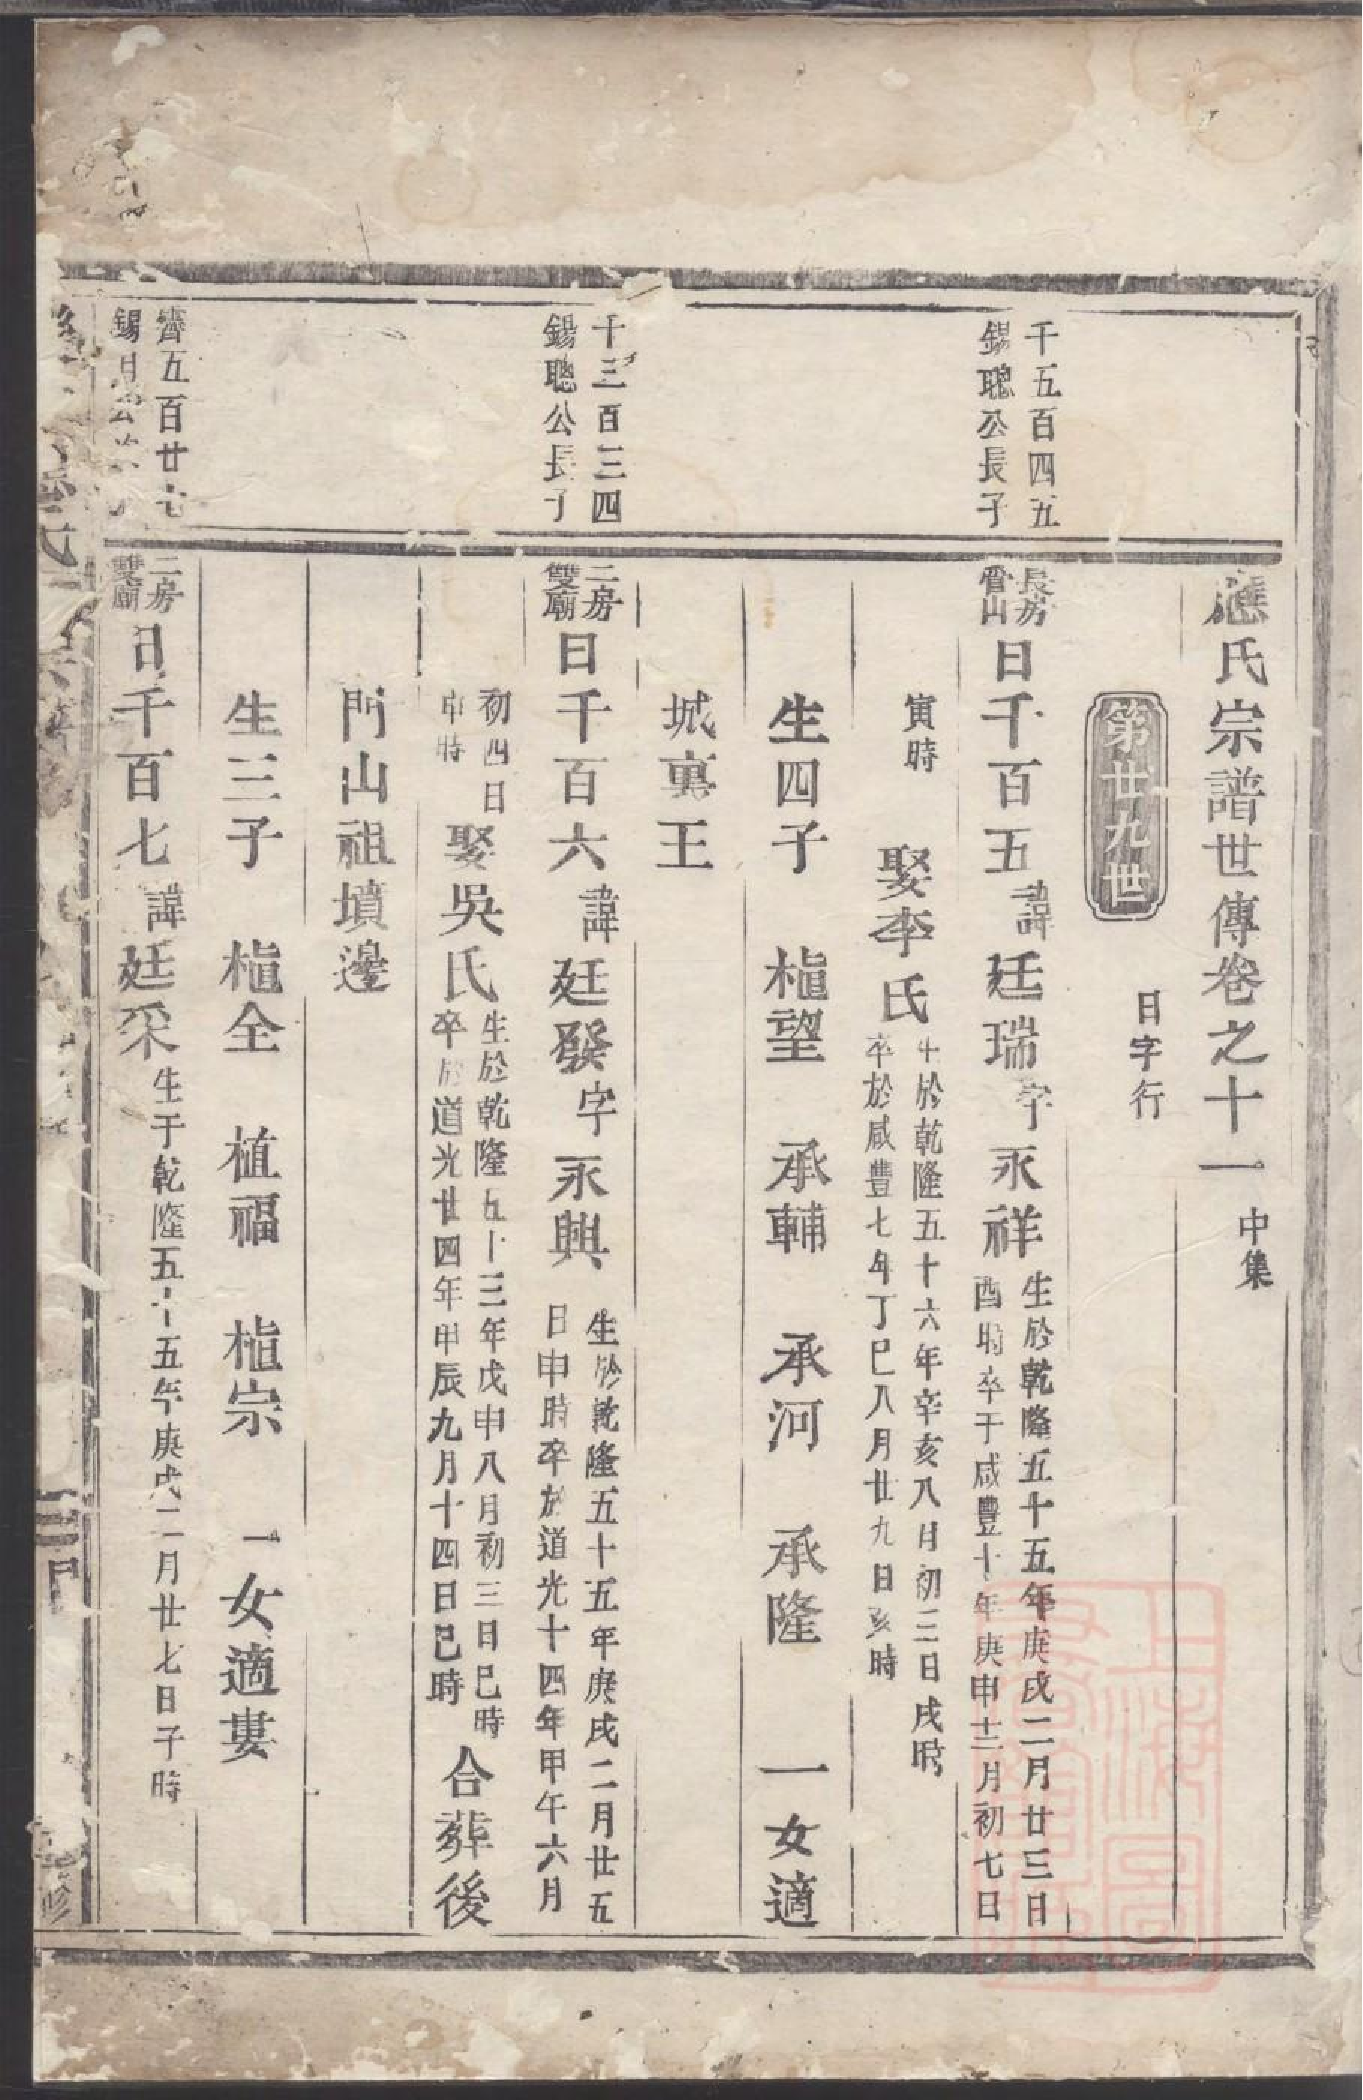 應氏宗譜世傳卷之十一 中集
第廿九世 日字行
千五百四五
錫聰公長子
長房
管山
日千百五 諱廷瑞 字永祥 生於乾隆五十五年庚戌二月廿三日
酉時卒于咸豐十年庚申十二月初七日
寅時 娶李氏 生於乾隆五十六年辛亥八月初三日戌時
卒於咸豐七年丁巳八月廿九日亥時
生四子 植望 承輔 承河 承隆 一女適
城裏王
千三百三四
錫聰公長子
二房
雙廟
日千百六 諱廷發 字永興 生於乾隆五十五年庚戌二月廿五
日申時卒於道光十四年甲午六月
初四日
申時 娶吳氏 生於乾隆五十三年戊申八月初三日巳時
卒於道光廿四年甲辰九月十四日巳時 合葬後
門山祖墳邊
生三子 植全 植福 植宗 一女適婁
齊五百廿七
錫 公
二房
雙廟
日千百七 諱廷采 生于乾隆五十五年庚戌二月廿七日子時
上海圖
書館藏